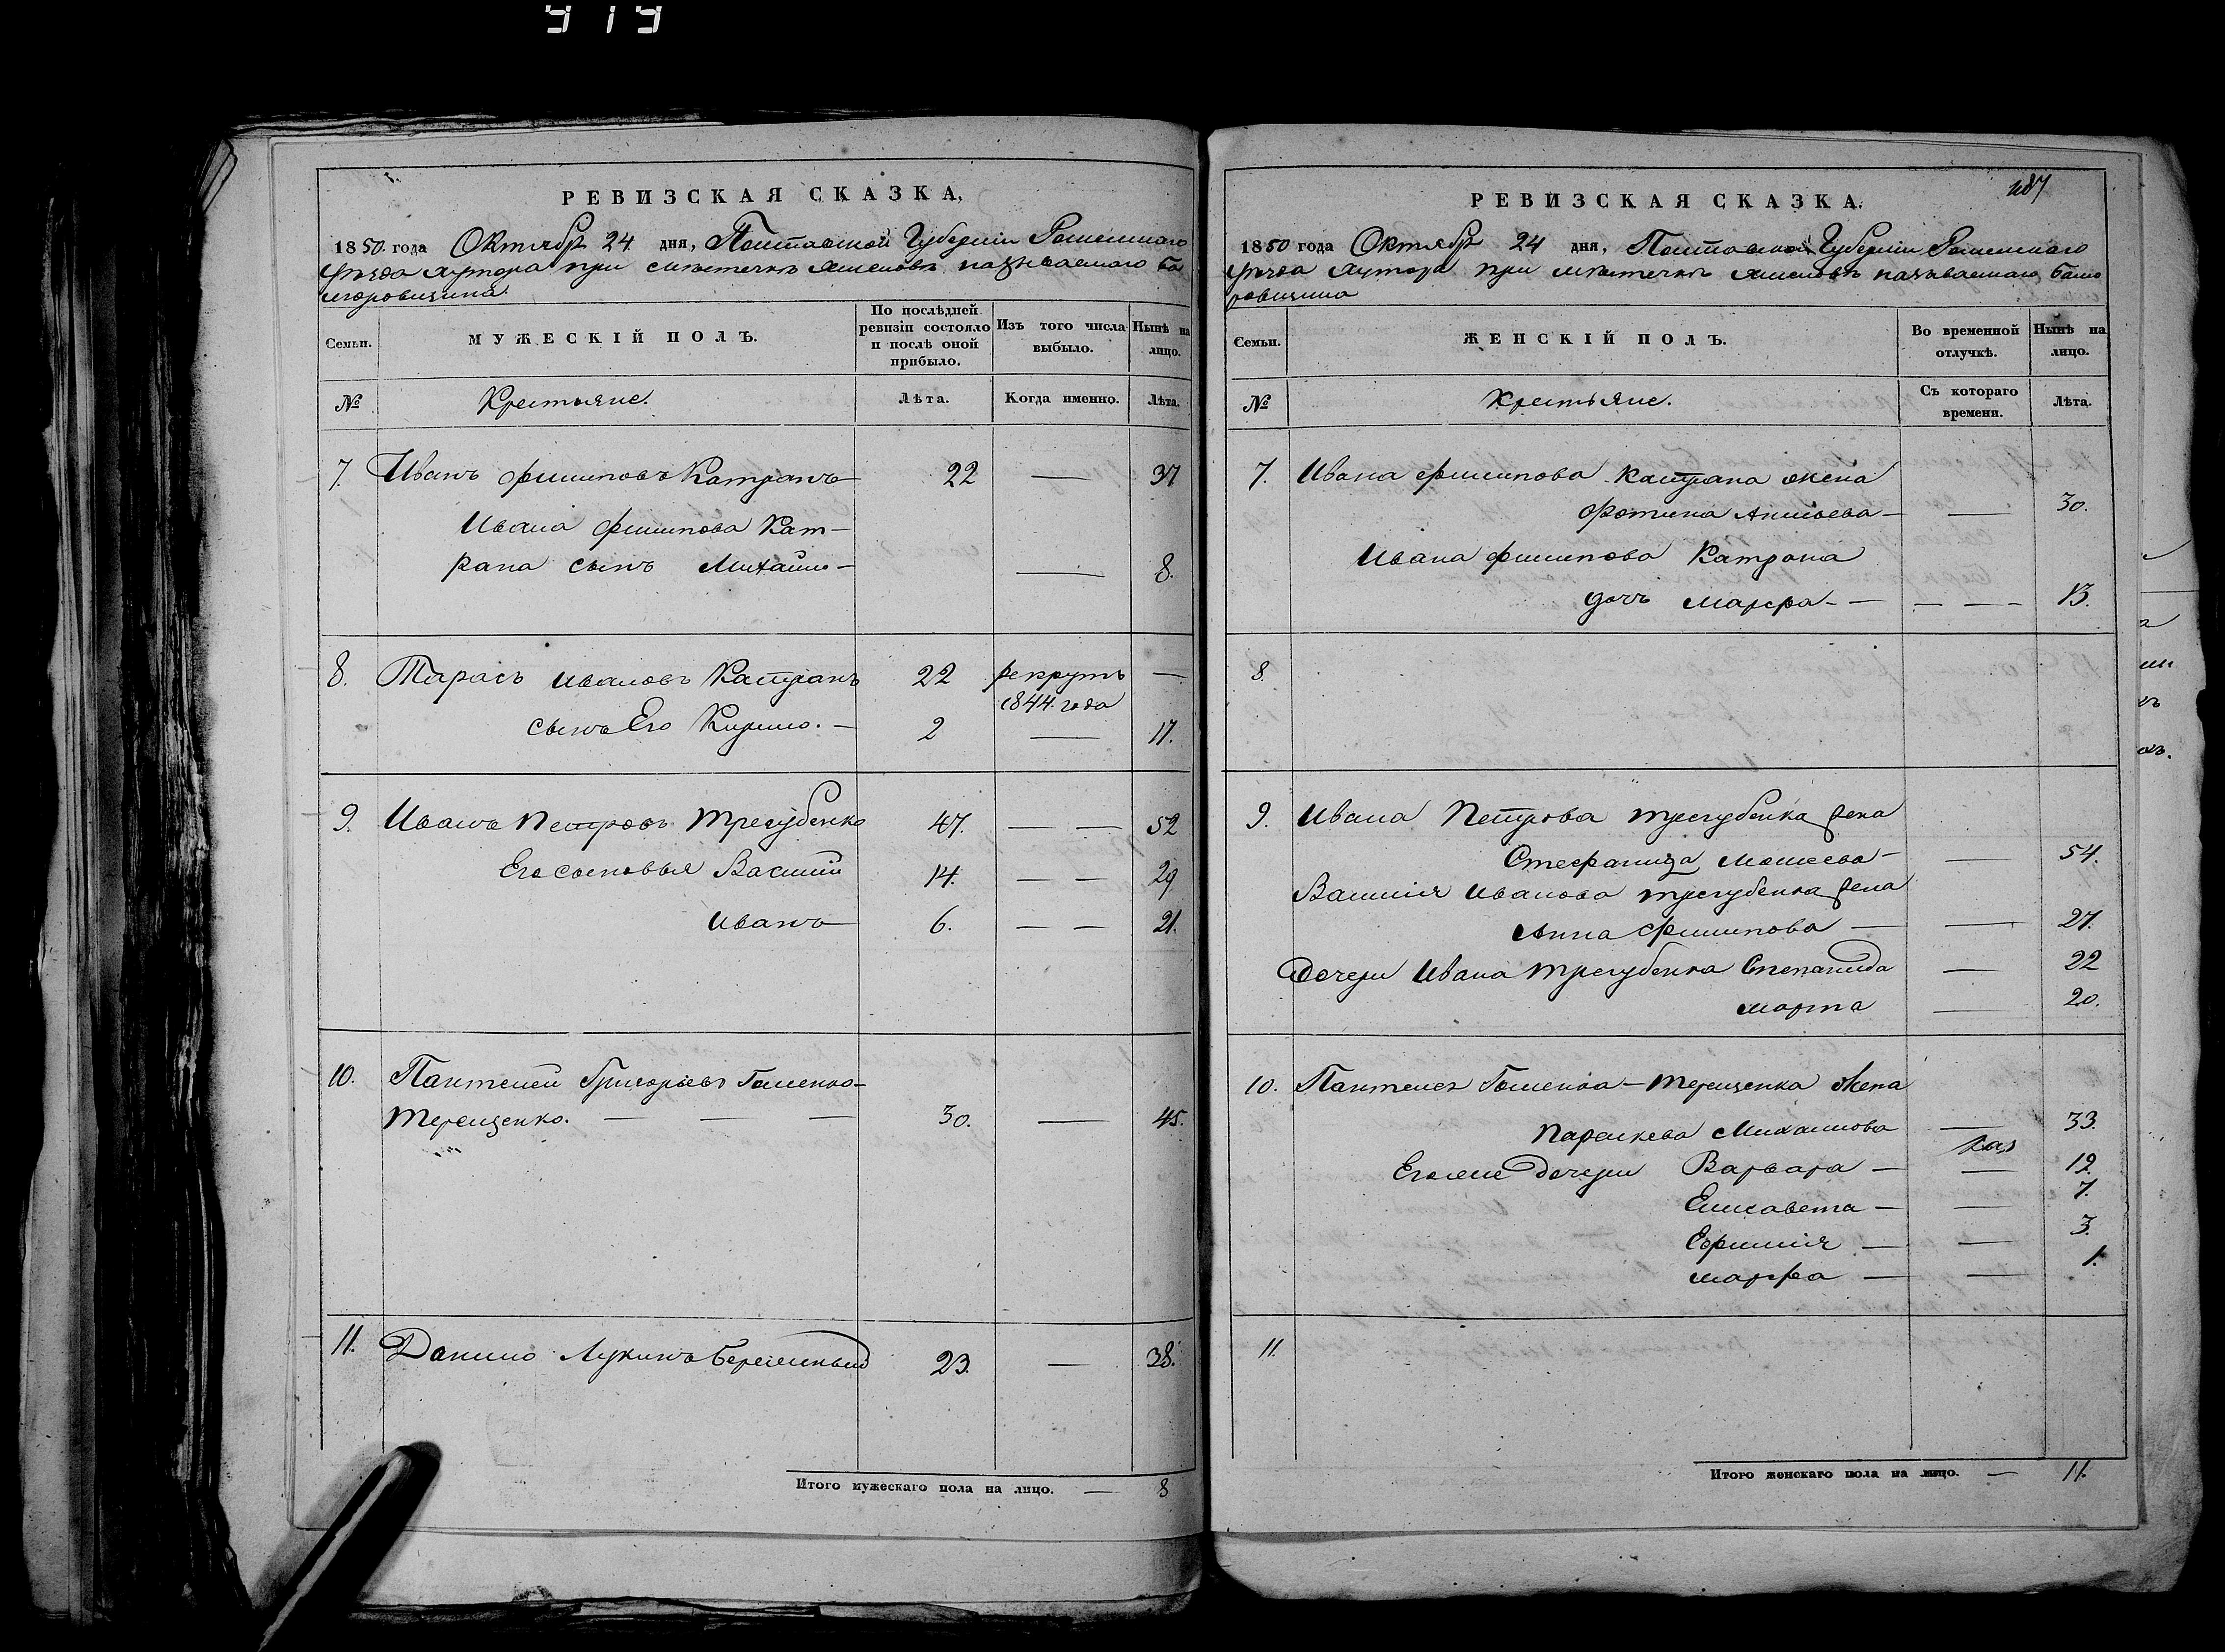 919
РЕВИЗСКАЯ СКАЗКА,
1850 года Октября 24 дня, Полтавской Губернии Роменского
уезда хутора при местечке называемого Ба
меровщина
Семьи.
МУЖЕСКІЙ ПОЛЪ.
По послѣдней ревизіи состояло и послѣ оной прибыло.
Изъ того числа выбыло.
Нынѣ на лицо.
№
Крестьяне.
Лѣта.
Когда именно.
Лѣта.
7. Иванъ Филиповъ Катранъ 22 — 37
Ивана Филипова Кат-
рана сынъ Михайло — — 8.
8. Тарасъ Ивановъ Катранъ 22 рекрутъ —
1844 года
сынъ Его Кирило. — 2 — 17.
9. Иванъ Петровъ Трегубенко 47. — — 52
Его сыновья Василий 14. — — 29
Иванъ 6. — — 21.
10. Пантелей Григорьевъ
Терещенко. — — — 30. — 45.
11. Данило Лукинъ 23. — 38.
Итого мужескаго пола на лицо. — 8
487
РЕВИЗСКАЯ СКАЗКА.
1850 года Октября 24 дня, Полтавской Губернии Роменского
уезда хутора при местечке называемого Баме
ровщина
Семьи.
ЖЕНСКІЙ ПОЛЪ.
Во временной отлучкѣ.
Нынѣ на лицо.
№
Крестьяне.
Съ котораго времени.
Лѣта.
7. Ивана Филипова Катрана жена
Фотина — — 30.
Ивана Филипова Катрана
дочь Марфа - — — — — 13.
8.
9. Ивана Петрова Трегубенка жена
Стефанида Моисеева — — 54.
Василия Иванова Трегубенка жена
Анна Филипова — — 27.
Дочери Ивана Трегубенка Степанида — 22
Марта — 20.
10. Пантелея — Терещенка жена
Параскева Михайлова — 33.
Его же дочери Варвара — — 12.
Елисавета — — 7.
Ефимия — — 3.
Марфа — — 1.
11.
Итого женскаго пола на лицо. — 11.